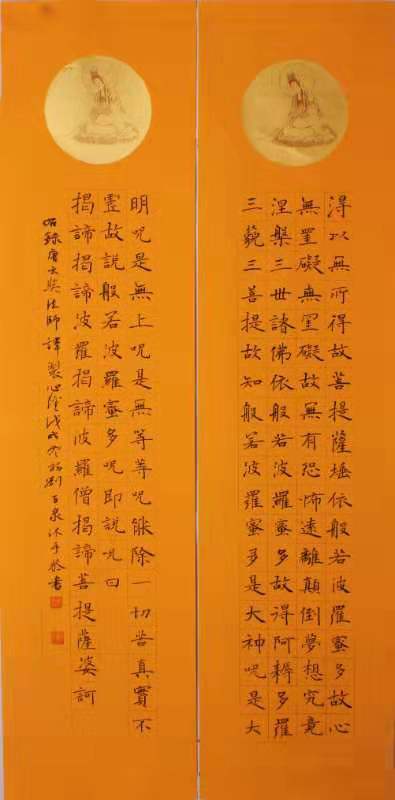 得以無所得故菩提薩埵依般若波羅蜜多故心
無罣礙無罣礙故無有恐怖遠離顛倒夢想究竟
涅槃三世諸佛依般若波羅蜜多故得阿耨多羅
三藐三菩提故知般若波羅蜜多是大神呪是大
明呪是無上呪是無等等呪能除一切苦真實不
虛故說般若波羅蜜多呪即說呪曰
揭諦揭諦波羅揭諦波羅僧揭諦菩提薩婆訶
錄唐玄奘法師譯製心經戊戌劉百泉沐手敬書